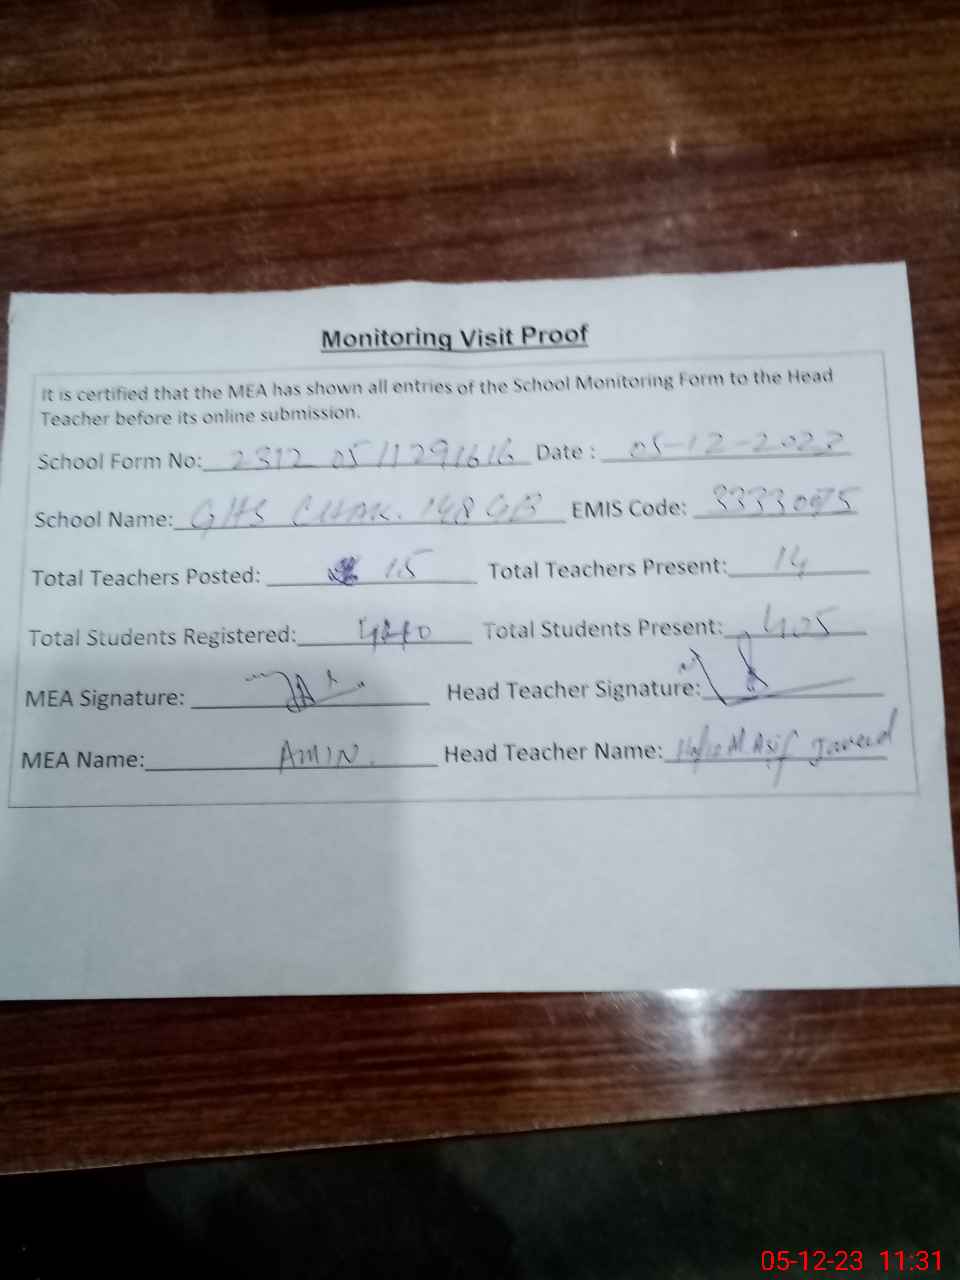 Monitoring Visit Proof
It is certified that the MEA has shown all entries of the School Monitoring Form to the Head
Teacher before its online submission.
School Form No: 2312 0511291616 Date : 05-12-2023
School Name: GHS CHAK. 148 GB EMIS Code:
Total Teachers Posted: 15 Total Teachers Present: 14
Total Students Registered: Total Students Present: 405
MEA Signature: Head Teacher Signature:
MEA Name: AMIN. Head Teacher Name: Hafiz M Asif Javeed
05-12-23 11:31